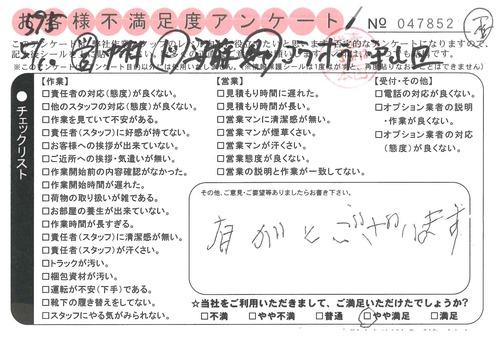 お客様不満足度アンケート
№ 047852
【作業】
□責任者の対応（態度）が良くない。
□他のスタッフの対応（態度）が良くない。
□作業を見ていて不安がある。
□責任者（スタッフ）に好感が持てない。
□お客様への挨拶が出来ていない。
□ご近所への挨拶・気遣いが無い。
□作業開始前の内容確認がなかった。
□作業開始時間が遅れた。
□荷物の取り扱いが雑である。
□お部屋の養生が出来ていない。
□作業時間が長すぎる。
□責任者（スタッフ）に清潔感が無い。
□責任者（スタッフ）が汗くさい。
□トラックが汚い。
□梱包資材が汚い。
□運転が不安（下手）である。
□靴下の履き替えをしてない。
□スタッフにやる気がみられない。
【営業】
□見積もり時間に遅れた。
□見積もり時間が長い。
□営業マンに清潔感が無い。
□営業マンが煙草くさい。
□営業マンが汗くさい。
□営業態度が良くない。
□営業の説明と作業が一致してない。
【受付・その他】
□電話の対応が良くない。
□オプション業者の説明
・作業が良くない。
□オプション業者の対応
（態度）が良くない。
チェックリスト
その他、ご意見・ご要望等ありましたらお書き下さい。
有がとございます
☆当社をご利用いただきまして、ご満足いただけたでしょうか？
□不満 □やや不満 □普通 □やや満足 □満足